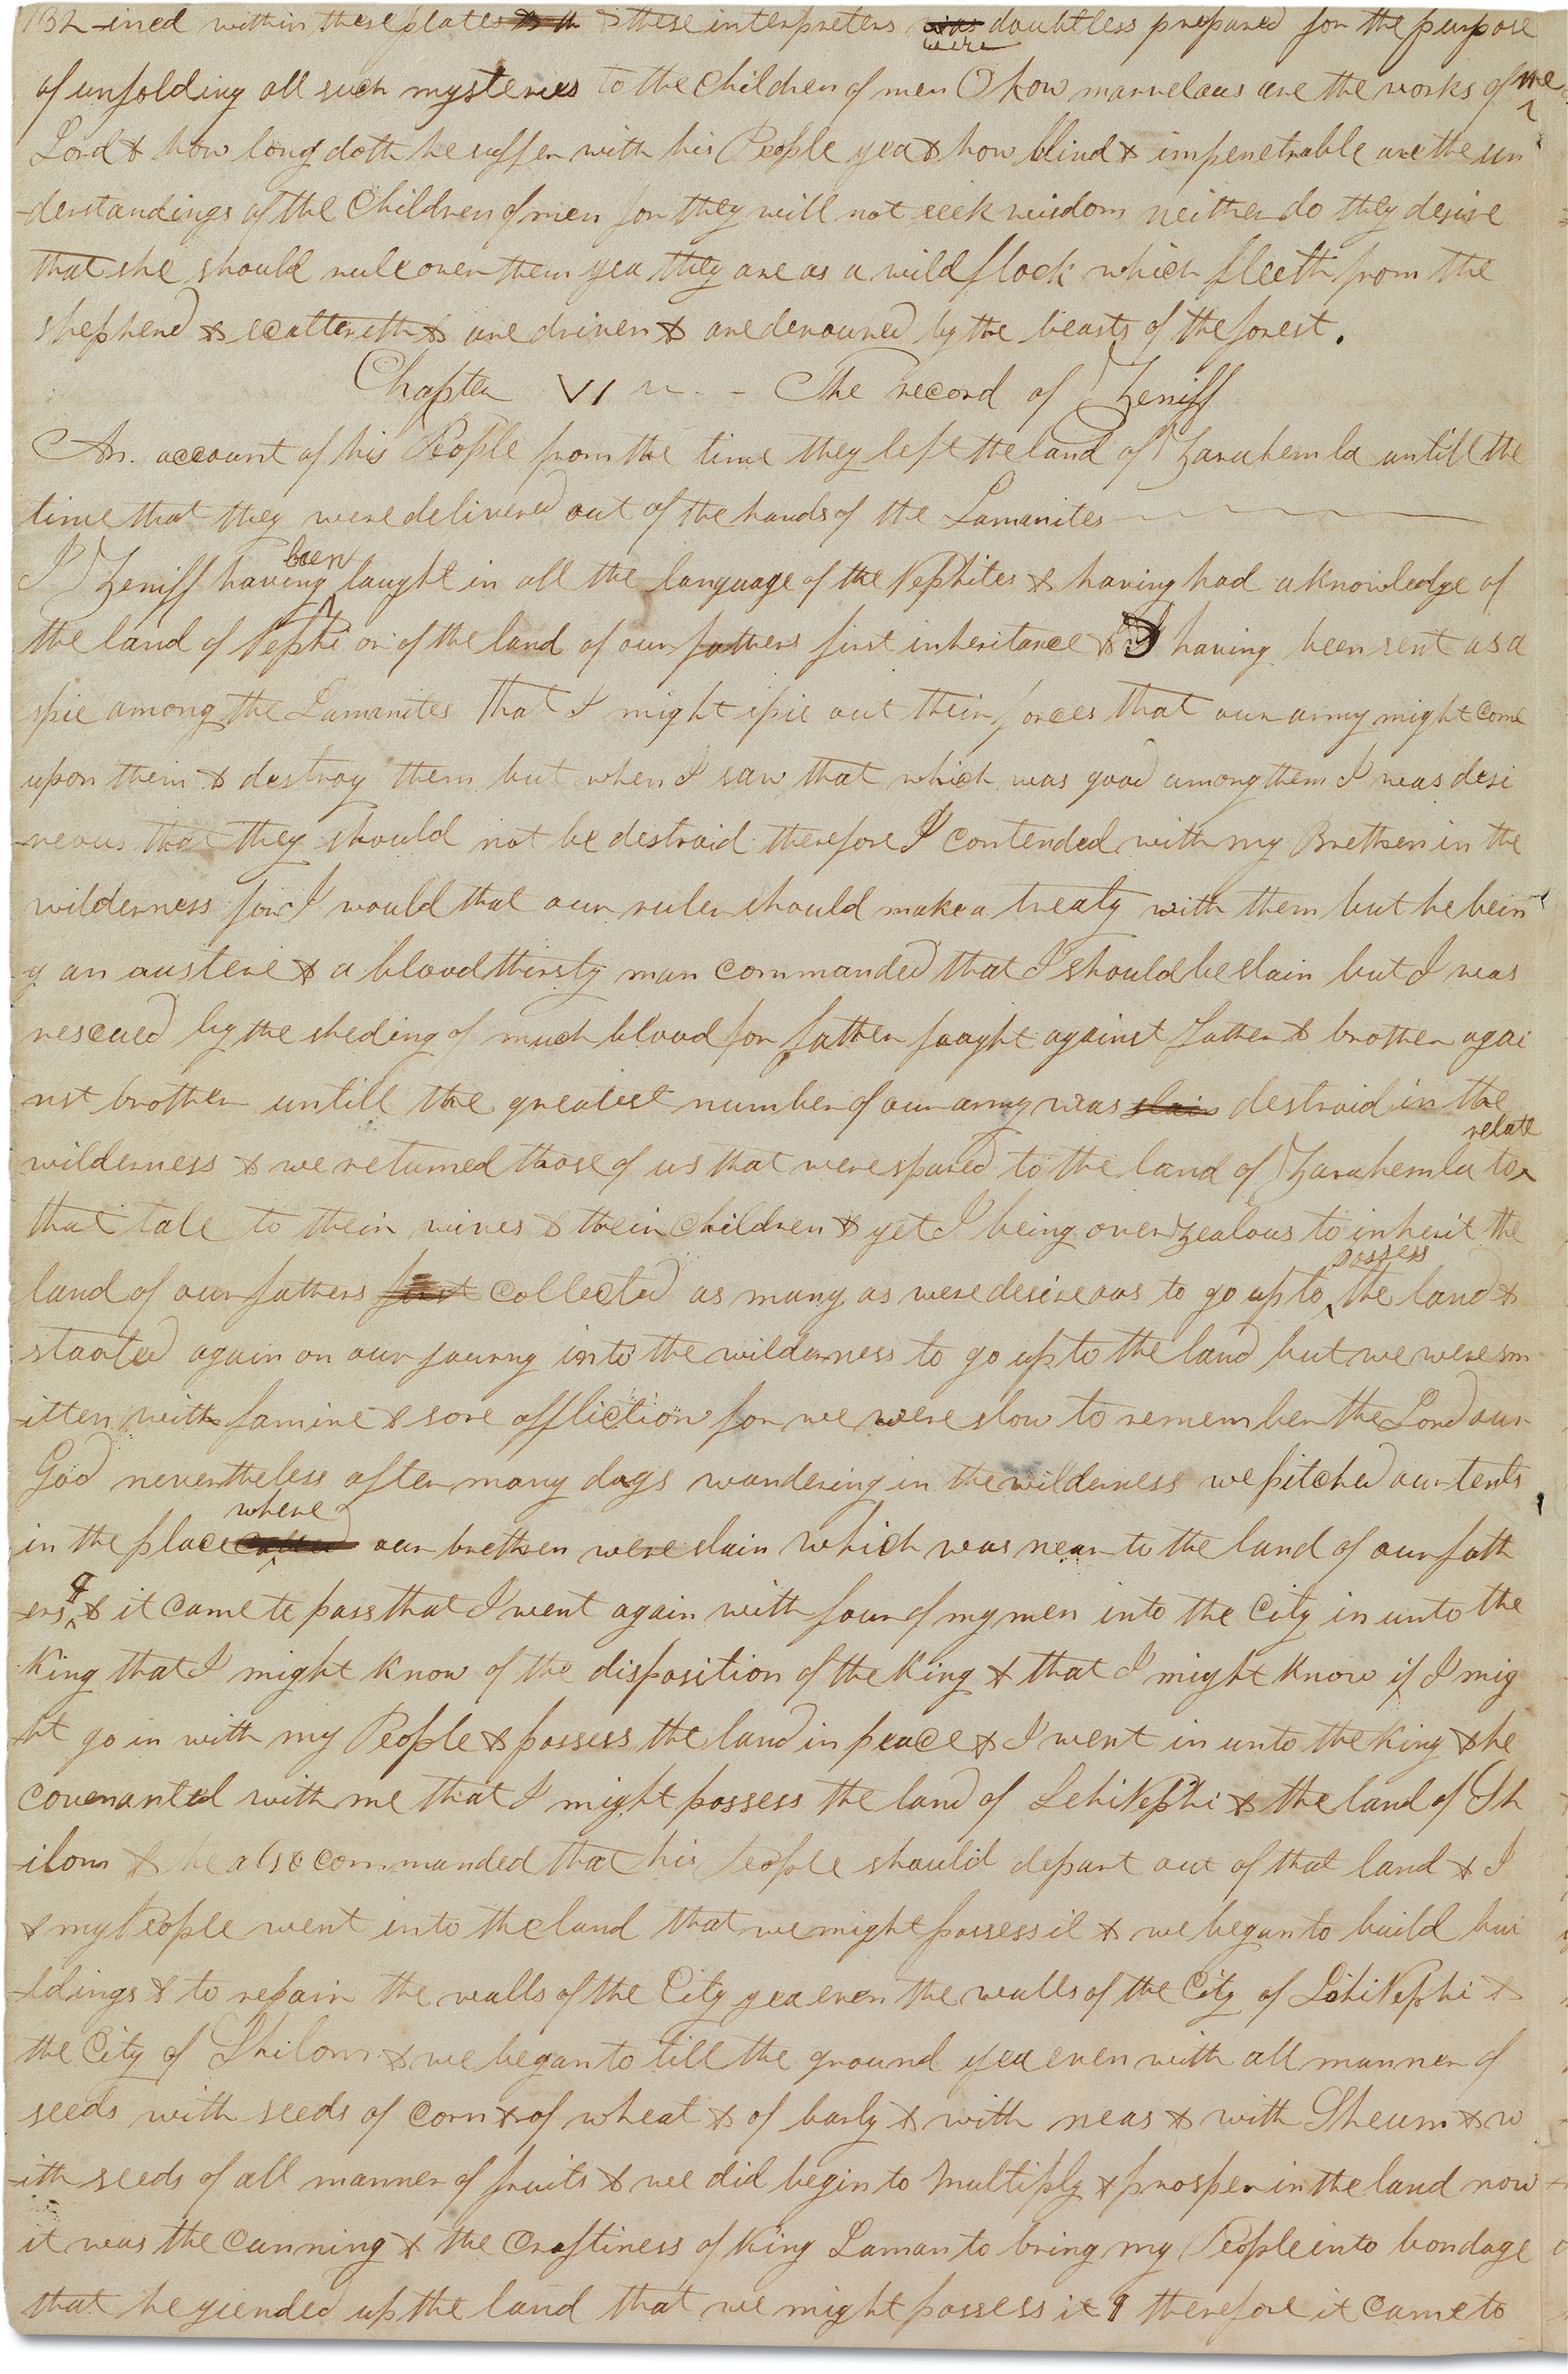 132 -ined within these plates & these interpreters was were doubtless prepared for the purpose
of unfolding all such mysteries to the Children of men O how marvelous are the works of the
Lord & how long doth he suffer with his People yea & how blind & impenetrable are the un
-derstandings of the Children of men for they will not seek wisdom neither do they desire
that she should rule over them yea they are as a wild flock which fleeth from the
shepherd & scattereth & are driven & are devoured by the beasts of the forest.
Chapter VI — The record of Zeniff
An account of his People from the time they left the land of Zarahemla untill the
time that they were delivered out of the hands of the Lamanites
I Zeniff having been taught in all the language of the Nephites & having had a knowledge of
the land of Nephi or of the land of our fathers first inheritance & I having been sent as a
spie among the Lamanites that I might spie out their forces that our army might come
upon them & destroy them but when I saw that which was good among them I was desi
-reous that they should not be destroid therefore I contended with my Brethren in the
wilderness for I would that our ruler should make a treaty with them but he bein
g an austere & a bloodthirsty man commanded that I should be slain but I was
rescued by the sheding of much blood for father faught against father & brother agai
nst brother untill the greatest number of our army was slain destroid in the
wilderness & we returned those of us that were spared to the land of Zarahemla to relate
that tale to their wives & their children & yet I being over zealous to inherit the
land of our fathers first collected as many as were desireous to go up to possess the land &
started again on our journy into the wilderness to go up to the land but we were sm
-itten with famine & sore affliction for we were slow to remember the Lord our
God nevertheless after many days wandering in the wilderness we pitched our tents
in the place where our brethren were slain which was near to the land of our fath
-ers ¶ & it came to pass that I went again with four of my men into the City in unto the
King that I might know of the disposition of the King & that I might know if I mig
-ht go in with my People & possess the land in peace & I went in unto the King & he
covenanted with me that I might possess the land of Lehi Nephi & the land of Sh
-ilom & he also commanded that his People should depart out of that land & I
& my People went into the land that we might possess it & we began to build bui
-ldings & to repair the walls of the City yea even the walls of the City of Lehi Nephi &
the City of Shilom & we began to till the ground yea even with all manner of
seeds with seeds of corn & of wheat & of barly & with neas & with Sheum & w
-ith seeds of all manner of fruits & we did begin to multiply & prosper in the land now
it was the cunning & the craftiness of King Laman to bring my People into bondage
that he yielded up the land that we might possess it ¶ therefore it came to